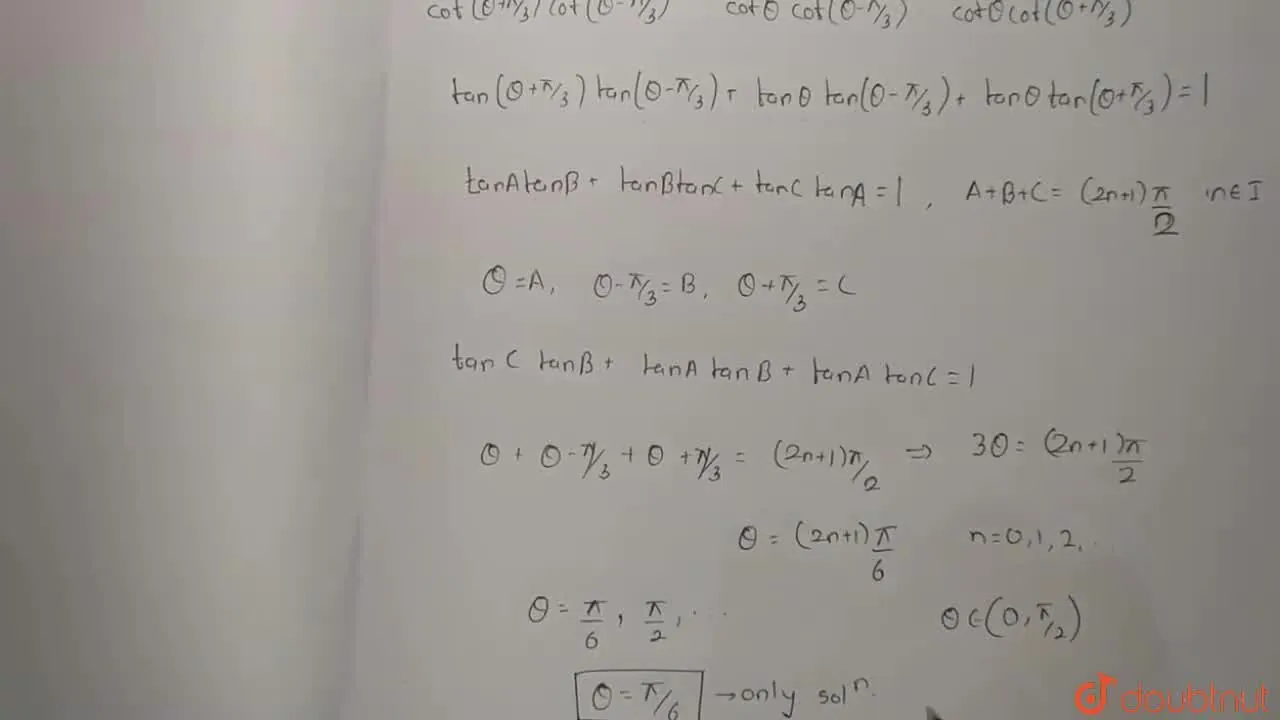 cot(θ+π/3) cot(θ-π/3) cotθ cot(θ-π/3) cotθ cot(θ+π/3)
tan(θ+π/3) tan(θ-π/3) + tanθ tan(θ-π/3) + tanθ tan(θ+π/3) = 1
tanA tanB + tanB tanC + tanC tanA = 1, A+B+C = (2n+1) π/2 n∈I
θ = A, θ-π/3 = B, θ+π/3 = C
tan C tanB + tanA tanB + tanA tanC = 1
θ + θ-π/3 + θ + π/3 = (2n+1)π/2 ⇒ 3θ = (2n+1)π/2
θ = (2n+1) π/6 n=0,1,2,..
θ = π/6, π/2, ... θ∈(0, π/2)
θ = π/6 → only solⁿ.
doubtnut